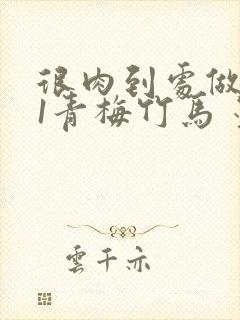 很肉到處做
1青梅竹馬
雲千亦